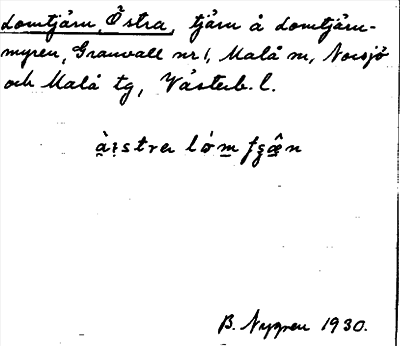 Lomtjärn, Östra, tjärn å Lomtjärn-
myren, Granvall nr 1, Malå sn, Norsjö
och Malå tg, Västerb. l.
B. Nygren 1930.